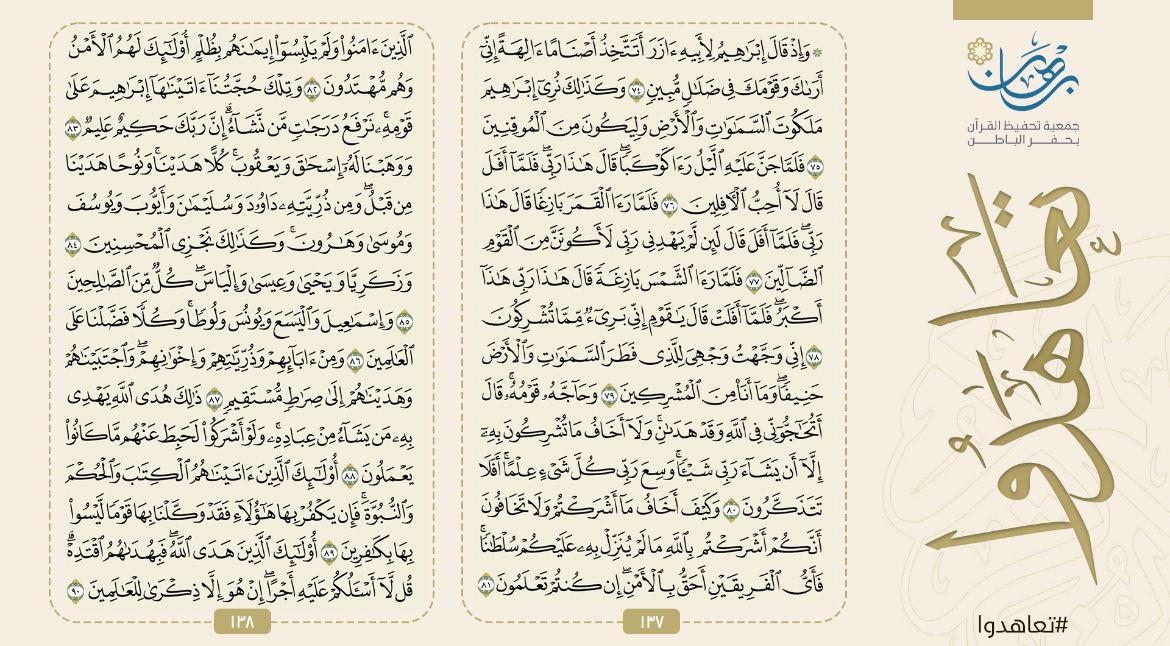 برهان
جمعية تحفيظ القرآن
بحفر الباطن
تعاهدوا
#تعاهدوا
۞ وَإِذْ قَالَ إِبْرَاهِيمُ لِأَبِيهِ ءَازَرَ أَتَتَّخِذُ أَصْنَامًا ءَالِهَةً إِنِّىٓ
أَرَىٰكَ وَقَوْمَكَ فِى ضَلَٰلٍ مُّبِينٍ ٧٤ وَكَذَٰلِكَ نُرِىٓ إِبْرَٰهِيمَ
مَلَكُوتَ ٱلسَّمَٰوَٰتِ وَٱلْأَرْضِ وَلِيَكُونَ مِنَ ٱلْمُوقِنِينَ
٧٥ فَلَمَّا جَنَّ عَلَيْهِ ٱلَّيْلُ رَءَا كَوْكَبًا ۖ قَالَ هَٰذَا رَبِّى ۖ فَلَمَّآ أَفَلَ
قَالَ لَآ أُحِبُّ ٱلْءَافِلِينَ ٧٦ فَلَمَّا رَءَا ٱلْقَمَرَ بَازِغًا قَالَ هَٰذَا
رَبِّى ۖ فَلَمَّآ أَفَلَ قَالَ لَئِن لَّمْ يَهْدِنِى رَبِّى لَأَكُونَنَّ مِنَ ٱلْقَوْمِ
ٱلضَّآلِّينَ ٧٧ فَلَمَّا رَءَا ٱلشَّمْسَ بَازِغَةً قَالَ هَٰذَا رَبِّى هَٰذَآ
أَكْبَرُ ۖ فَلَمَّآ أَفَلَتْ قَالَ يَٰقَوْمِ إِنِّى بَرِىٓءٌ مِّمَّا تُشْرِكُونَ
٧٨ إِنِّى وَجَّهْتُ وَجْهِىَ لِلَّذِى فَطَرَ ٱلسَّمَٰوَٰتِ وَٱلْأَرْضَ
حَنِيفًا ۖ وَمَآ أَنَا۠ مِنَ ٱلْمُشْرِكِينَ ٧٩ وَحَآجَّهُۥ قَوْمُهُۥ ۚ قَالَ
أَتُحَٰٓجُّوٓنِّى فِى ٱللَّهِ وَقَدْ هَدَىٰنِ ۚ وَلَآ أَخَافُ مَا تُشْرِكُونَ بِهِۦٓ
إِلَّآ أَن يَشَآءَ رَبِّى شَيْـًٔا ۗ وَسِعَ رَبِّى كُلَّ شَىْءٍ عِلْمًا ۗ أَفَلَا
تَتَذَكَّرُونَ ٨٠ وَكَيْفَ أَخَافُ مَآ أَشْرَكْتُمْ وَلَا تَخَافُونَ
أَنَّكُمْ أَشْرَكْتُم بِٱللَّهِ مَا لَمْ يُنَزِّلْ بِهِۦ عَلَيْكُمْ سُلْطَٰنًا ۚ
فَأَىُّ ٱلْفَرِيقَيْنِ أَحَقُّ بِٱلْأَمْنِ ۖ إِن كُنتُمْ تَعْلَمُونَ ٨١
١٣٧
ٱلَّذِينَ ءَامَنُوا۟ وَلَمْ يَلْبِسُوٓا۟ إِيمَٰنَهُم بِظُلْمٍ أُو۟لَٰٓئِكَ لَهُمُ ٱلْأَمْنُ
وَهُم مُّهْتَدُونَ ٨٢ وَتِلْكَ حُجَّتُنَآ ءَاتَيْنَٰهَآ إِبْرَٰهِيمَ عَلَىٰ
قَوْمِهِۦ ۚ نَرْفَعُ دَرَجَٰتٍ مَّن نَّشَآءُ ۗ إِنَّ رَبَّكَ حَكِيمٌ عَلِيمٌ ٨٣
وَوَهَبْنَا لَهُۥٓ إِسْحَٰقَ وَيَعْقُوبَ ۚ كُلًّا هَدَيْنَا ۚ وَنُوحًا هَدَيْنَا
مِن قَبْلُ ۖ وَمِن ذُرِّيَّتِهِۦ دَاوُۥدَ وَسُلَيْمَٰنَ وَأَيُّوبَ وَيُوسُفَ
وَمُوسَىٰ وَهَٰرُونَ ۚ وَكَذَٰلِكَ نَجْزِى ٱلْمُحْسِنِينَ ٨٤
وَزَكَرِيَّا وَيَحْيَىٰ وَعِيسَىٰ وَإِلْيَاسَ ۖ كُلٌّ مِّنَ ٱلصَّٰلِحِينَ
٨٥ وَإِسْمَٰعِيلَ وَٱلْيَسَعَ وَيُونُسَ وَلُوطًا ۚ وَكُلًّا فَضَّلْنَا عَلَى
ٱلْعَٰلَمِينَ ٨٦ وَمِنْ ءَابَآئِهِمْ وَذُرِّيَّٰتِهِمْ وَإِخْوَٰنِهِمْ ۖ وَٱجْتَبَيْنَٰهُمْ
وَهَدَيْنَٰهُمْ إِلَىٰ صِرَٰطٍ مُّسْتَقِيمٍ ٨٧ ذَٰلِكَ هُدَى ٱللَّهِ يَهْدِى
بِهِۦ مَن يَشَآءُ مِنْ عِبَادِهِۦ ۚ وَلَوْ أَشْرَكُوا۟ لَحَبِطَ عَنْهُم مَّا كَانُوا۟
يَعْمَلُونَ ٨٨ أُو۟لَٰٓئِكَ ٱلَّذِينَ ءَاتَيْنَٰهُمُ ٱلْكِتَٰبَ وَٱلْحُكْمَ
وَٱلنُّبُوَّةَ ۚ فَإِن يَكْفُرْ بِهَا هَٰٓؤُلَآءِ فَقَدْ وَكَّلْنَا بِهَا قَوْمًا لَّيْسُوا۟
بِهَا بِكَٰفِرِينَ ٨٩ أُو۟لَٰٓئِكَ ٱلَّذِينَ هَدَى ٱللَّهُ ۖ فَبِهُدَىٰهُمُ ٱقْتَدِهْ ۗ
قُل لَّآ أَسْـَٔلُكُمْ عَلَيْهِ أَجْرًا ۖ إِنْ هُوَ إِلَّا ذِكْرَىٰ لِلْعَٰلَمِينَ ٩٠
١٣٨